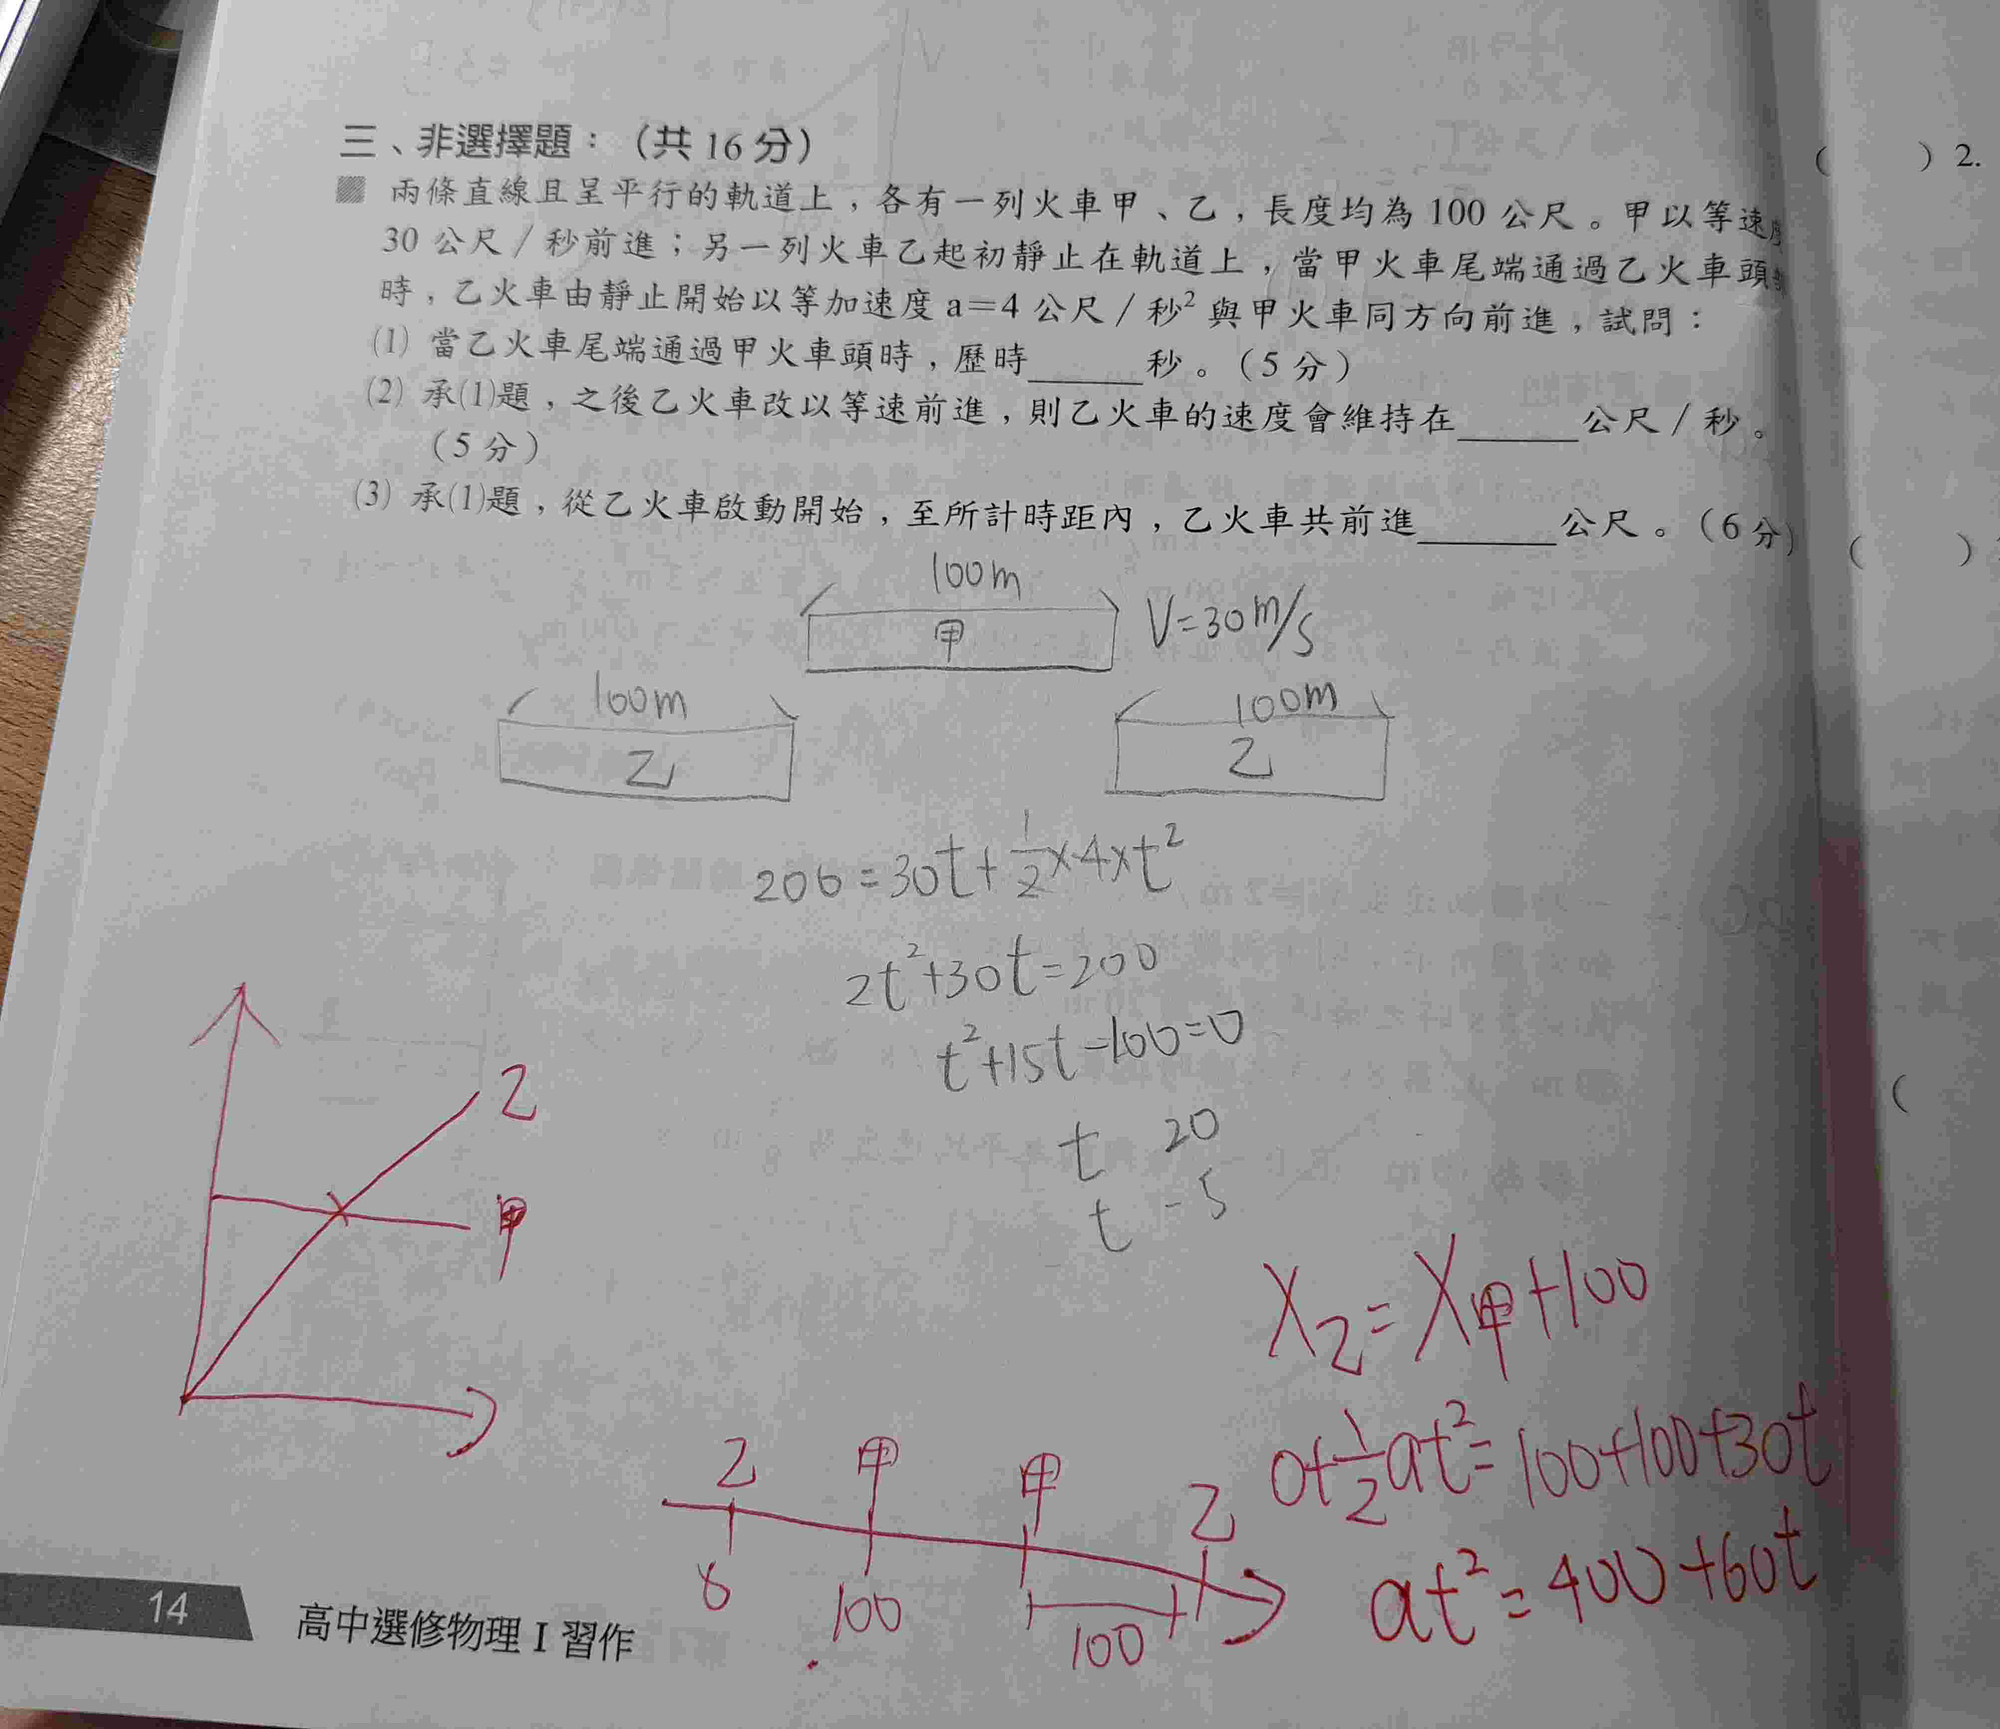 三、非選擇題：（共 16 分）
（　　）2.
兩條直線且呈平行的軌道上，各有一列火車甲、乙，長度均為 100 公尺。甲以等速
30 公尺／秒前進；另一列火車乙起初靜止在軌道上，當甲火車尾端通過乙火車頭
時，乙火車由靜止開始以等加速度 a＝4 公尺／秒² 與甲火車同方向前進，試問：
⑴ 當乙火車尾端通過甲火車頭時，歷時______秒。（5 分）
⑵ 承⑴題，之後乙火車改以等速前進，則乙火車的速度會維持在______公尺／秒。
（5 分）
⑶ 承⑴題，從乙火車啟動開始，至所計時距內，乙火車共前進______公尺。（6 分）
（　　）
100m
甲
V=30m/s
100m
乙
100m
乙
200=30t+1/2×4×t²
2t²+30t=200
t²+15t-100=0
t 20
t -5
（
乙
甲
X乙=X甲+100
0+1/2at²=100+100+30t
at²=400+60t
乙 甲 甲 乙
0 100 100
14
高中選修物理 I 習作